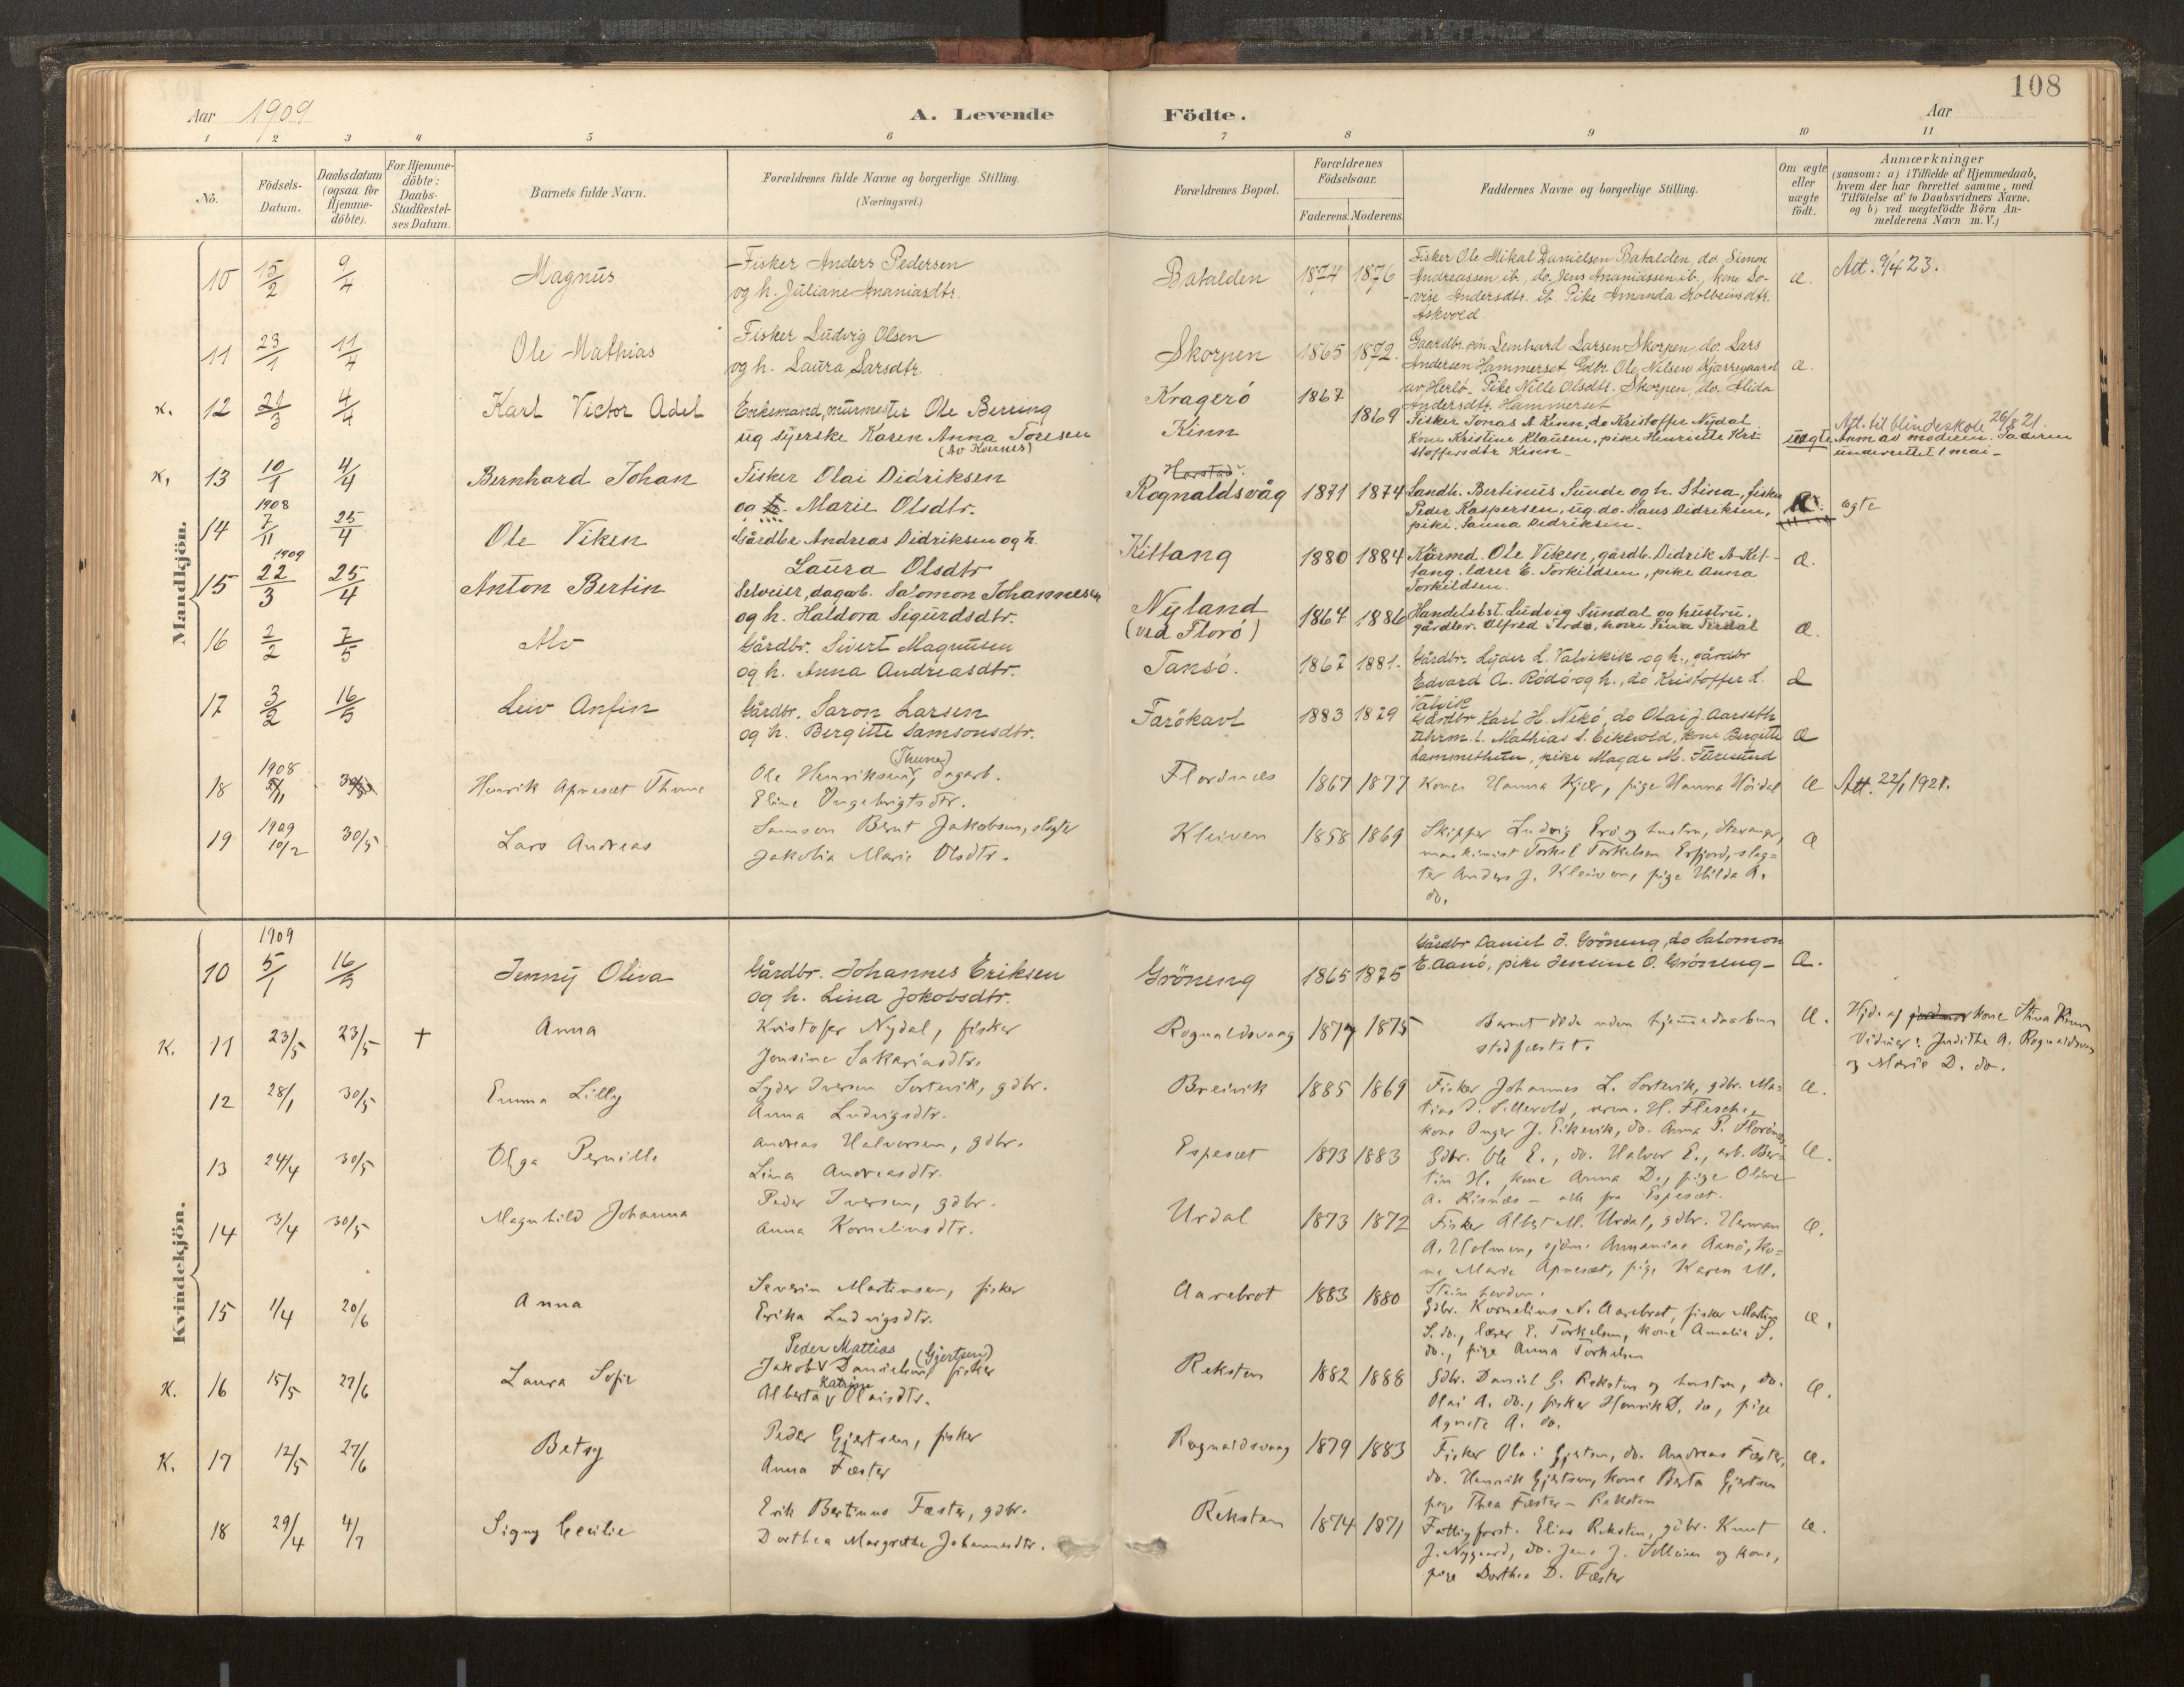 108
Aar 1909
A. Levende
Födte.
Aar
1 2 3 4 5 6 7 8 9 10 11
No.
Födsels-
Datum.
Daabsdatum
(ogsaa for
Hjemme-
döbte).
For Hjemme-
döbte:
Daabs-
Stadfæstel-
ses Datum.
Barnets fulde Navn.
Forældrenes fulde Navne og borgerlige Stilling.
(Næringsvei.)
Forældrenes Bopæl.
Forældrenes
Födselsaar.
Faderens. Moderens.
Faddernes Navne og borgerlige Stilling.
Om ægte
eller
uægte
födt.
Anmærkninger
(saasom: a) i Tilfælde af Hjemmedaab,
hvem der har forrettet samme, med
Tilföielse af to Daabsvidners Navne,
og b) ved uægtefödte Börn An-
melderens Navn m. V.)
Mandkjön.
10 15/2 9/4 Magnus
Fisker Anders Pedersen
og h. Juliane Ananiasdtr.
Batalden 1874 1876
Fisker Ole Mikal Danielsen Batalden, do. Simon
Andreassen ib., do. Jens Ananiassen ib., kone Lo-
vise Andersdtr. ib. Pike Amanda Kolbeinsdtr.
Askvold
æ. Att. 9/4 23.
11 23/1 11/4 Ole Mathias
Fisker Ludvig Olsen
og h. Laura Larsdtr.
Skorpen 1865 1872.
Gaardbr. Lenhard Larsen Skorpen, do. Lars
Andersen Hammerset Gdbr. Ole Nilsen Kjærregaard
av Herlö. Pike Nille Olsdtr. Skorpen, do. Alida
Andersdtr. Hammerset
æ.
K. 12 21/3 4/4 Karl Victor Adel
Enkemand, murmester Ole Berring
ug syerske Karen Anna Toresen
(Av Kvernes)
Kragerö 1867
Kinn 1869
Fisker Jonas A. Kinn, do Kristoffer Nydal
kone Kristine Klausen, pike Henriette Kri-
stoffersdtr Kinn
uegte
Att. til blindeskole 26/8 21.
Anm av moderen. Faderen
underrettet 1 mai
K. 13 10/1 4/4 Bernhard Johan
Fisker Olai Didriksen
og h. Marie Olsdtr.
Harstad
Rognaldsvåg 1871 1874
Landh. Bertinus Sunde og h. Stina, fisker
Peder Kaspersen, ug. do. Hans Didriksen,
pike, Sanna Didriksen.
ægte
14 1908 7/11 25/4 Ole Viken
Gårdbr Andreas Didriksen og h.
Laura Olsdtr
Kittang 1880 1884
Kårmd. Ole Viken, gårdb. Didrik A. Kit-
tang, lærer E. Torkildsen, pike Anna
Torkildsen.
æ.
15 1909 22/3 25/4 Anton Bertin
Selveier, dagarb. Salomon Johannesen
og h. Haldora Sigurdsdtr.
Nyland
(ved Florö)
1864 1886
Handelsbst. Ludvig Sundal og hustru.
gårdbr. Alfred
æ.
16 2/2 2/5 Alv
Gårdbr. Sivert Magnusen
og h. Anna Andreasdtr.
Tansö. 1867 1881.
Gårdbr. Lyder L. Valvikik og h., gårdbr
Edvard A. Rödö og h., do Kristoffer L.
Valvik
æ
17 3/2 16/5 Leiv Anfin
Gårdbr. Saron Larsen
og h. Bergitte Samsonsdtr.
Farökavl 1883 1879
Gårdbr Karl H. Nekö, do Olai J. Aarseth
Uhrm. l. Mathias S. Eikevold, kone Bergitte
Lammethun, pike Magde M. Færesund
æ
18 1908 30/5 Henrik Apvesæt Thune
Ole Henriksen (Thune), dagarb.
Eline Ingebrigtsdtr.
Flordnæs 1867 1877
Kone Hanna Kjær, pige Hanna Höidal
æ Att. 22/1 1921.
19 1909 10/2 30/5 Lars Andreas
Samson Bernt Jakobsen, slagter
Jakobia Marie Olsdtr.
Kleiven 1858 1869
Skipper Ludvig Erö og hustru, Stavanger,
maskinist Torkel Torkelsen Erfjord, slag-
ter Anders J. Kleiven, pige Hilda A.
do.
æ
Kvindekjön.
10 1909 5/1 16/5 Jenny Oliva
Gårdbr. Johannes Eriksen
og h. Lina Jakobsdtr.
Gröneng 1865 1875
Gårdbr Daniel J. Gröneng, do Salomon
E. Aanö, pike Jensine O. Gröneng
æ.
K. 11 23/5 23/5 † Anna
Kristofer Nydal, fisker
Jensine Sakariasdtr.
Rognaldsvaag 1879 1875
Barnet döde uden hjemmedaaben
stadfæstet.
æ.
Hjd. af jordmor kone Stina Kinn
Vidner: Judithe A. Rognaldsvaag
og Marie D. do.
12 28/1 30/5 Emma Lilly
Lyder Iversen Sortevik, gdbr.
Anna Ludvigsdtr.
Breivik 1885 1869
Fisker Johannes L. Sortevik, gdbr. Ma-
tias J. Sellevold, urm. H. Flesche,
kone Inger J. Eikevik, do. Anna P. Florönes
æ.
13 24/4 30/5 Olga Pernille
Andreas Halvorsen, gdbr.
Lina Andreasdtr.
Espeset 1873 1883
Gdbr. Ole E., do. Halvor E., arb. Ber-
tin H., kone Anna D., pige Oline
A. Risnæs – alle fra Espeset.
æ.
14 3/4 30/5 Magnhild Johanna
Peder Iversen, gdbr.
Anna Korneliusdtr.
Urdal 1873 1872
Fisker Albert M. Urdal, gdbr. Herman
A. Holmen, sjöm. Annanias Aanö, ko-
ne Marie Apveset, pige Karen M.
Stein
æ.
15 1/4 20/6 Anna
Severin Martinsen, fisker
Erika Ludvigsdtr.
Aarebrot 1883 1880
Gdbr. Kornelius N. Aarebrot, fisker Martin
S. do., lærer E. Torkelsen, kone Amalie S.
do., pige Anna Torkelsen
æ.
K. 16 15/5 27/6 Laura Sofie
Peder Mattias (Gjertsen)
Jakob Danielsen, fisker
Katrine
Alberta Olaisdtr.
Reksten 1882 1888
Gdbr. Daniel G. Reksten og hustru, do.
Olai A. do., fisker Henrik D. do, pige
Agnete A. do.
æ.
K. 17 12/5 27/6 Betsy
Peder Gjertsen, fisker
Anna Fæster
Rognaldsvaag 1879 1883
Fisker Olai Gjertsen, do. Andreas Fæster,
do. Henrik Gjertsen, kone Berta Gjertsen
pige Thea Fæster – Reksten
æ.
18 29/4 4/7 Signy Cecilie
Erik Bertinus Fæster, gdbr.
Dorthea Margrethe Johannesdtr.
Reksten 1874 1871
Fattigforst. Elias Reksten, gdbr. Knut
J. Nygaard, do. Jens J. og kone,
pige Dorthea D. Fæster
æ.